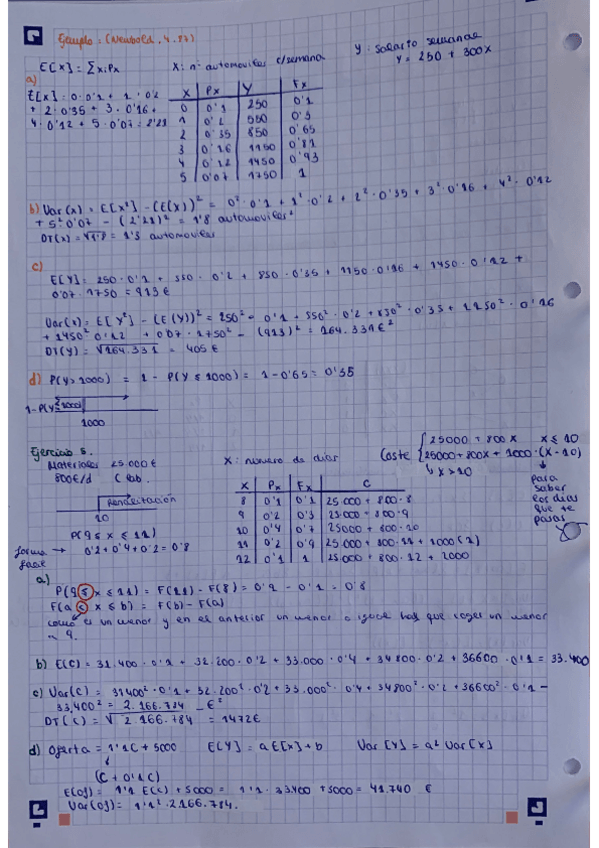 Ejemplo: (Newbold, 4.87)
Y: salario semanal
Y = 250 + 300X
E[X] = ∑ xi Px    X: nº automoviles c/semana
a)
E[X] = 0·0'1 + 1·0'2
+ 2·0'35 + 3·0'16 +
4·0'12 + 5·0'07 = 2'21
X Px Y Fx
0 0'1 250 0'1
1 0'2 550 0'3
2 0'35 850 0'65
3 0'16 1150 0'81
4 0'12 1450 0'93
5 0'07 1750 1
b) Var(x) = E[X²] - (E(x))² = 0²·0'1 + 1²·0'2 + 2²·0'35 + 3²·0'16 + 4²·0'12
+ 5²0'07 - (2'21)² = 1'8 automoviles²
DT(x) = √1'8 = 1'3 automoviles
c)
E[Y] = 250·0'1 + 550·0'2 + 850·0'35 + 1150·0'16 + 1450·0'12 +
0'07·1750 = 913€
Var(x) = E[Y²] - (E(Y))² = 250²·0'1 + 550²·0'2 + 850²·0'35 + 1150²·0'16
+ 1450² 0'12 + 0'07·1750² - (913)² = 164.331€²
DT(Y) = √164.331 = 405€
d) P(Y>1000) = 1 - P(Y ≤ 1000) = 1 - 0'65 = 0'35
1-P(Y≤1000)
1000
Ejercicio 5.
Materiales 25.000€
800€/d C lab.
X: número de días
Coste { 25000 + 800X    X ≤ 10
25000 + 800X + 1000·(X-10)
↳ X > 10
para
saber
los días
que te
pasas
Rendectación
10
P(9 ≤ X ≤ 11)
forma fácil → 0'2 + 0'4 + 0'2 = 0'8
X Px Fx C
8 0'1 0'1 25.000 + 800·8
9 0'2 0'3 25.000 + 800·9
10 0'4 0'7 25000 + 800·10
11 0'2 0'9 25.000 + 800·11 + 1000(1)
12 0'1 1 25.000 + 800·12 + 2000
a)
P(9 ≤ X ≤ 11) = F(11) - F(8) = 0'9 - 0'1 = 0'8
F(a < X ≤ b) = F(b) - F(a)
como es un menor y en el anterior un menor o igual hay que coger un menor
a 9.
b) E(C) = 31.400·0'1 + 32.200·0'2 + 33.000·0'4 + 34800·0'2 + 36600·0'1 = 33.400
c) Var(C) = 31400²·0'1 + 32.200²·0'2 + 33.000²·0'4 + 34800²·0'2 + 36600²·0'1 -
33,400² = 2.166.784 €²
DT(C) = √2.166.784 = 1472€
d) Oferta = 1'1C + 5000    E[Y] = aE[X] + b    Var[Y] = a² Var[X]
(C + 0'1C)
E(Of) = 1'1 E(C) + 5000 = 1'1·33400 + 5000 = 41.740 €
Var(Of) = 1'1²·2166.784.